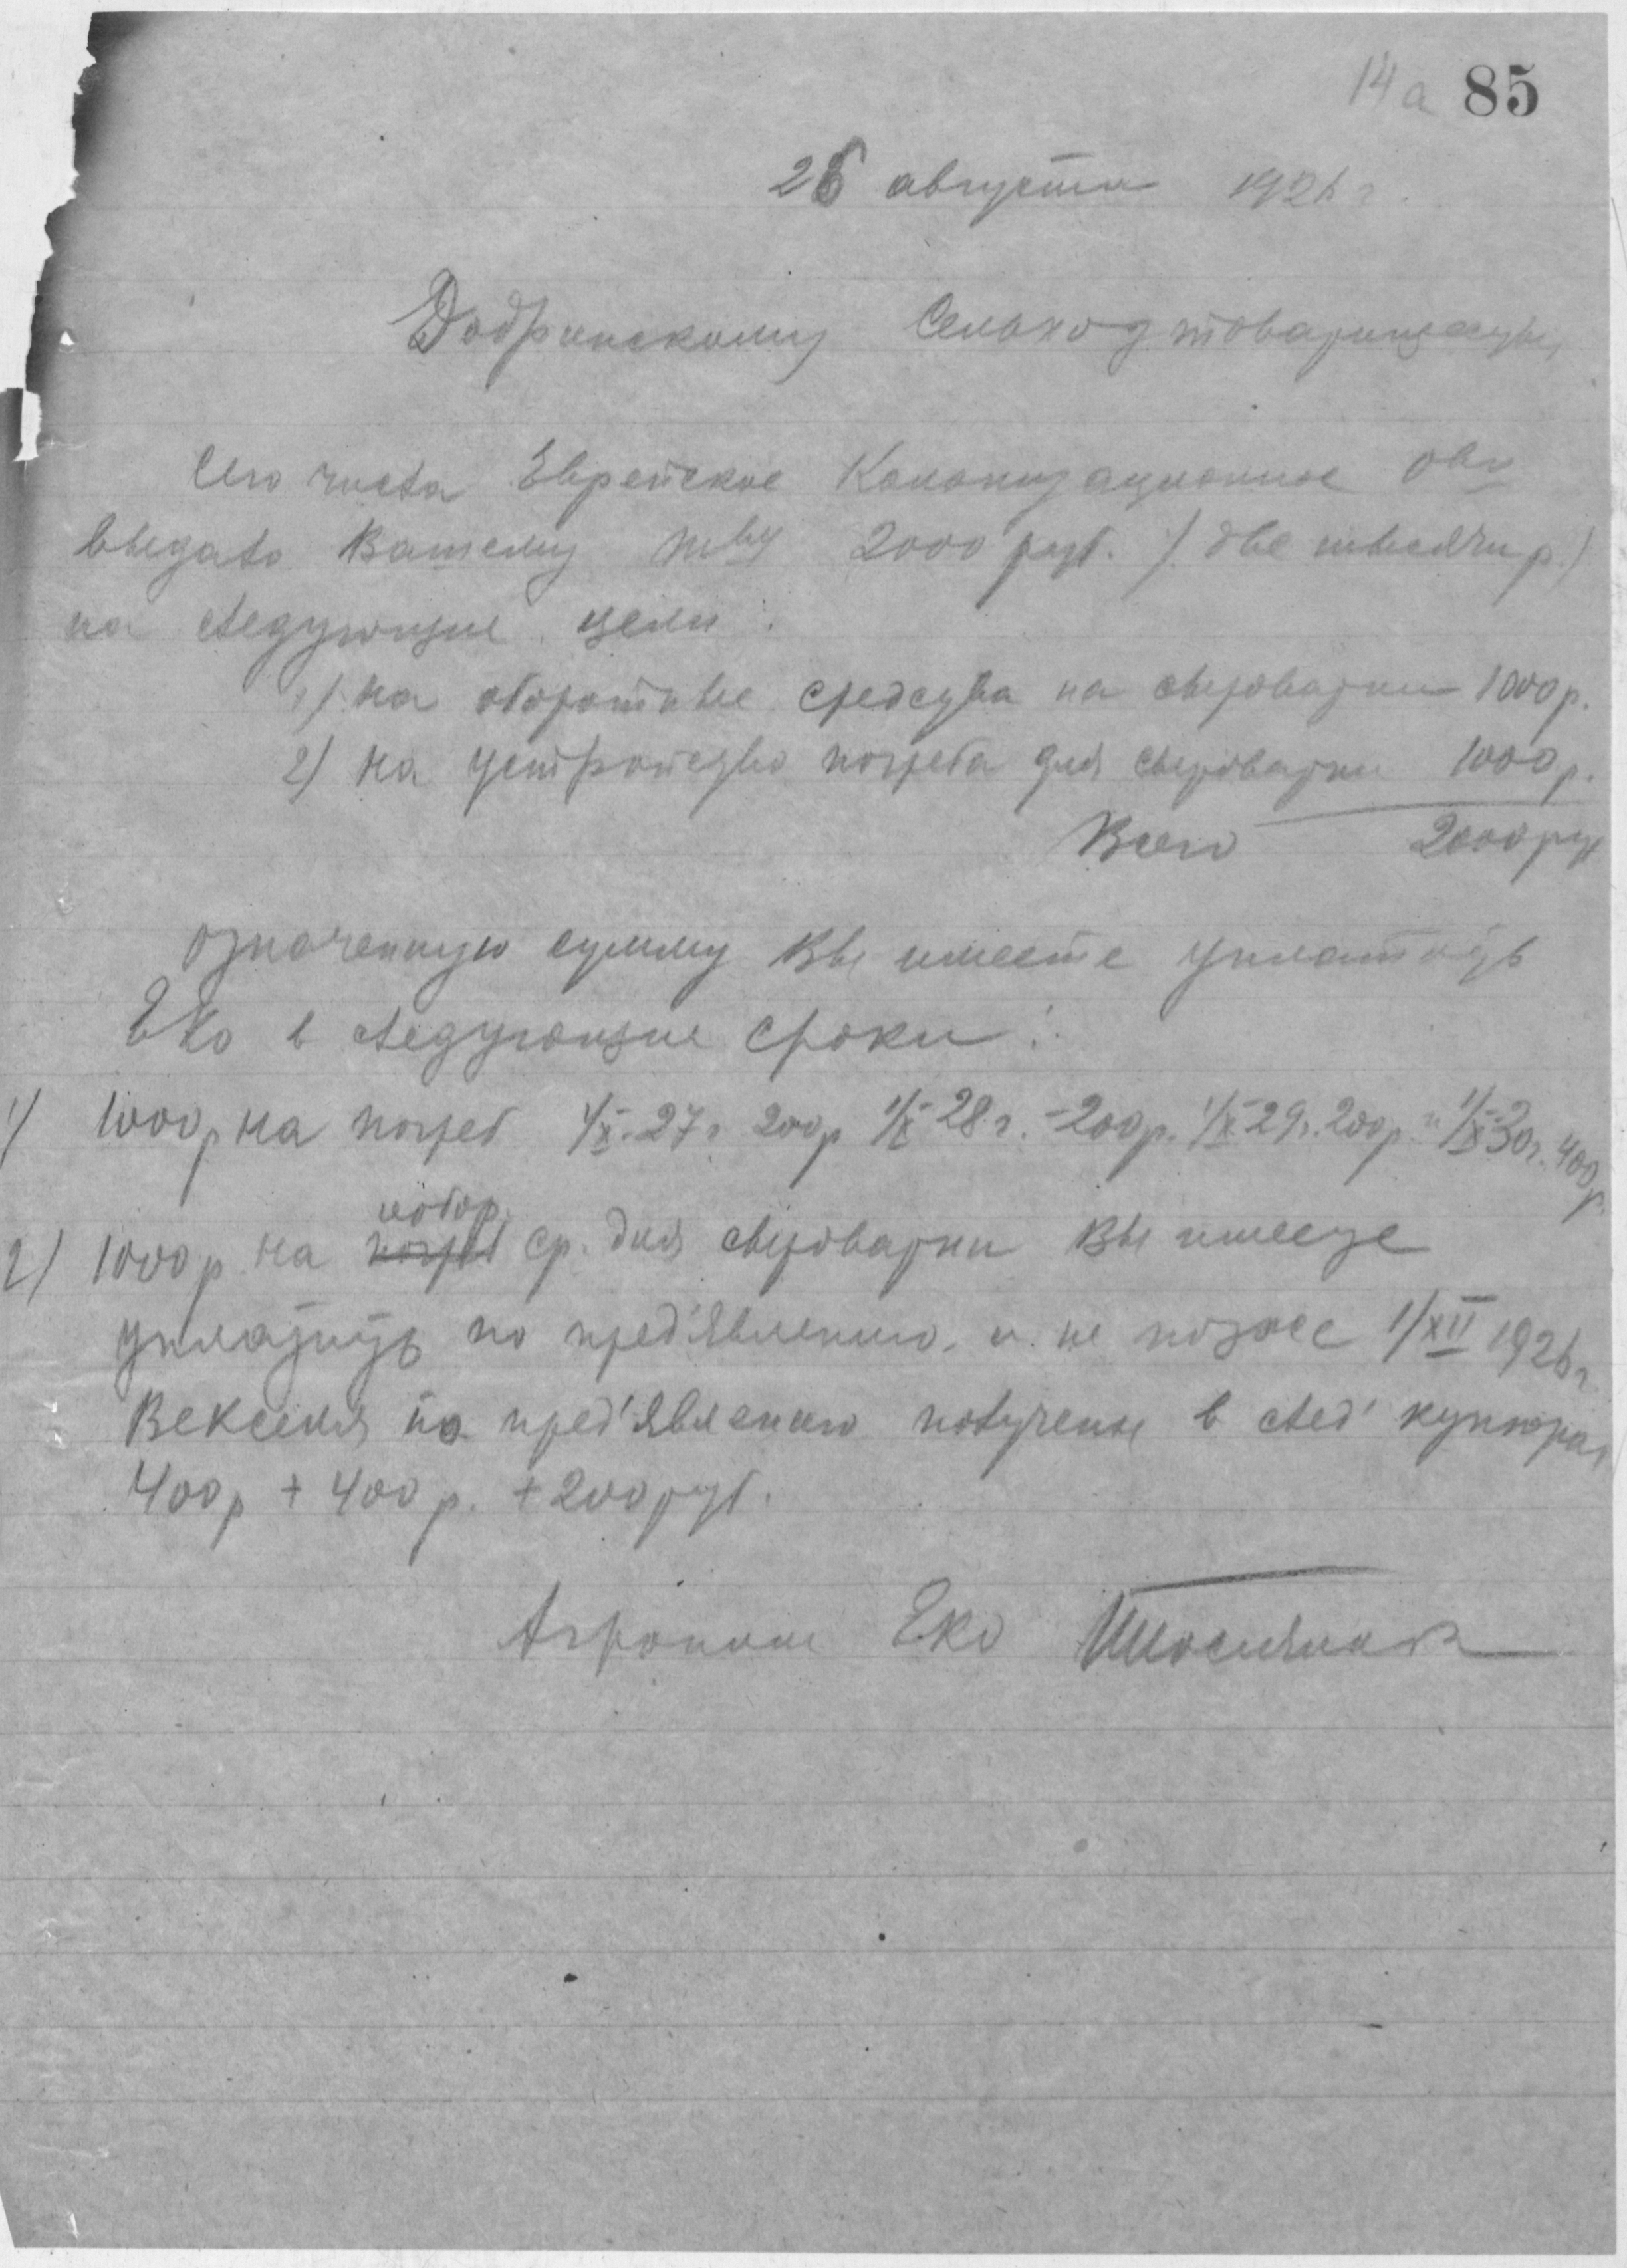 14а 85
26 августа 1926 г.
Добринскому Сельхоз товариществу
Сего числа Еврейское Колонизационное О-во
выдало Вашему т-ву 2000 руб. /две тысячи р./
на следующие цели:
1/ на оборотные средства на сыроварни 1000 р.
2/ на устройство погреба для сыроварни 1000 р.
Всего 2000 руб
означенную сумму Вы имеете уплатить
ЕКО в следующие сроки:
1/ 1000 р на погреб 1/X-27 г 200 р 1/X-28 г. -200 р. 1/X-29 г. 200 р и 1/X-30 г. 400 р.
2/ 1000 р на погреб обор. ср. для сыроварни Вы имеете
уплатить по пред'явлению, и не позже 1/XII 1926 г
Векселя по пред'явлению получены в след' купюрах
400 р + 400 р. + 200 руб.
Агроном ЕКО